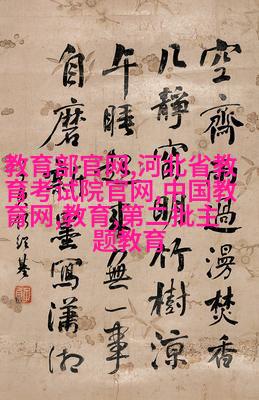 教育部官网,河北省教
育考试院官网,中国教
育网,教育,第二批主
题教育
空齋過漫焚香
几靜窗明竹凉
午睡起來無一事
自磨墨寫瀟湘